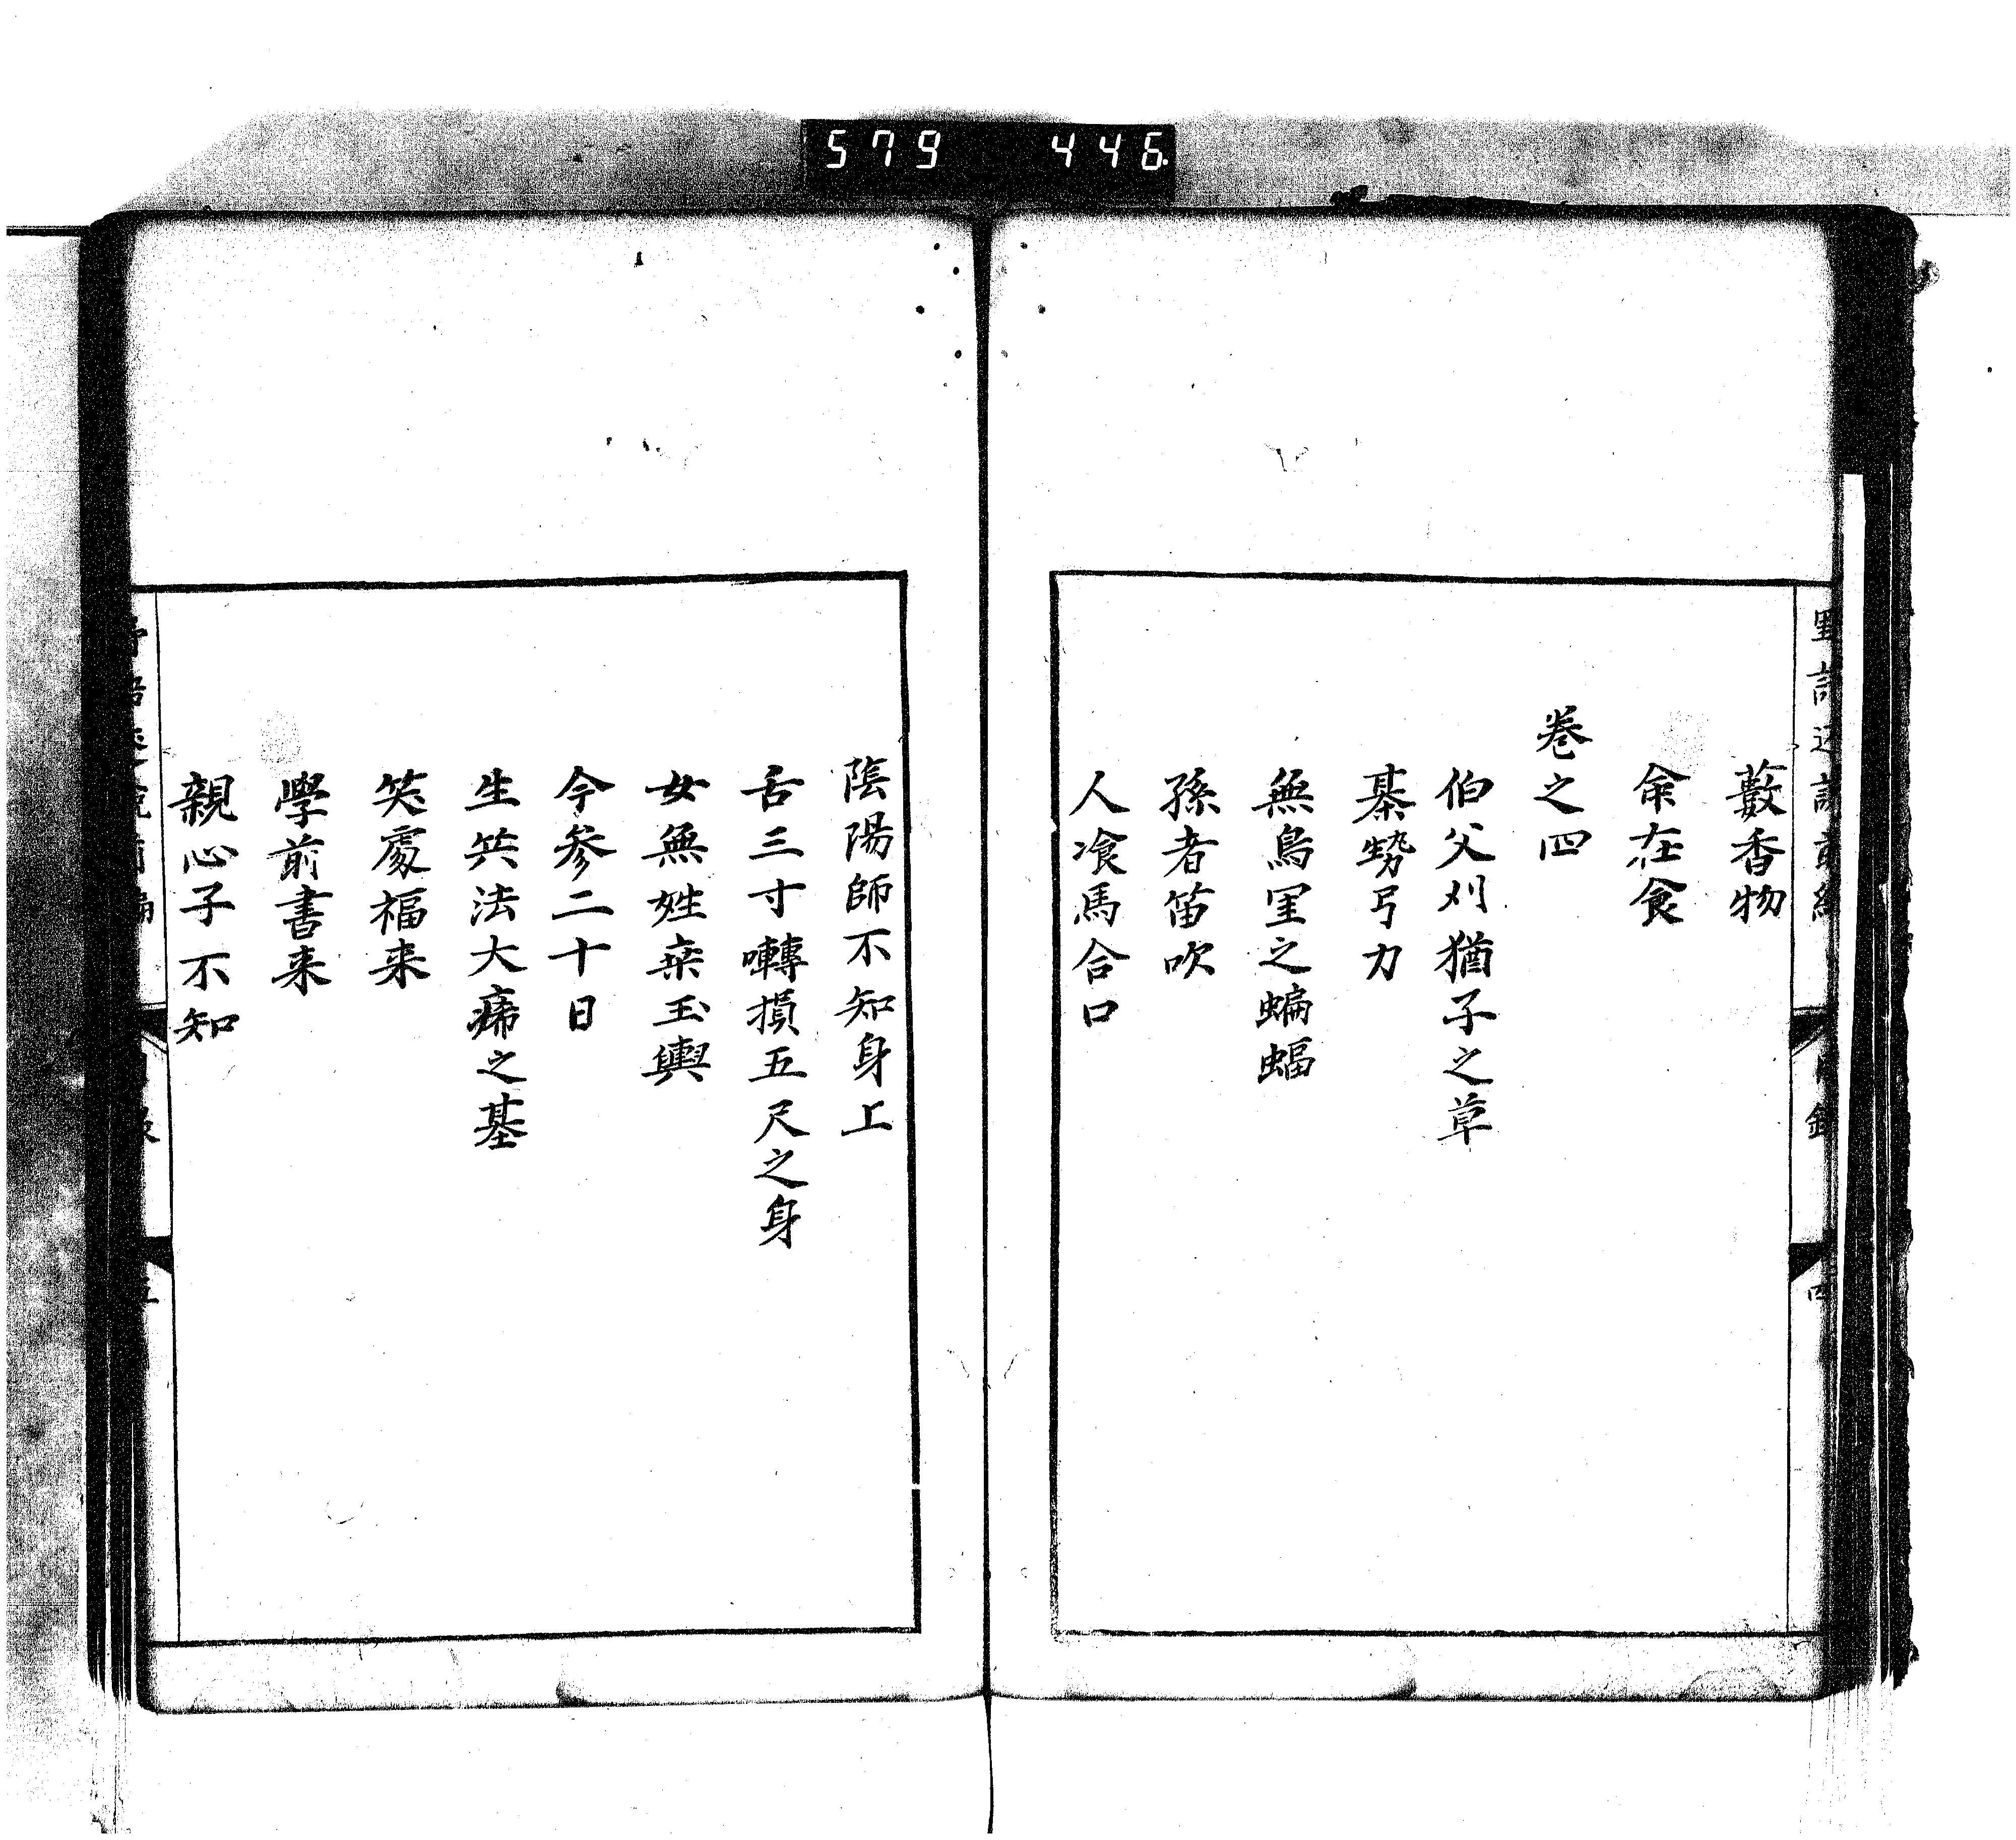 579 446
藪香物
命在食
巻之四
伯父刈猶子之草
碁勢弓力
無鳥里之蝙蝠
孫者笛吹
人飡馬合口
陰陽師不知身上
舌三寸囀損五尺之身
女無姓乗玉輿
今参二十日
生兵法大疵之基
笑處福来
學前書来
親心子不知